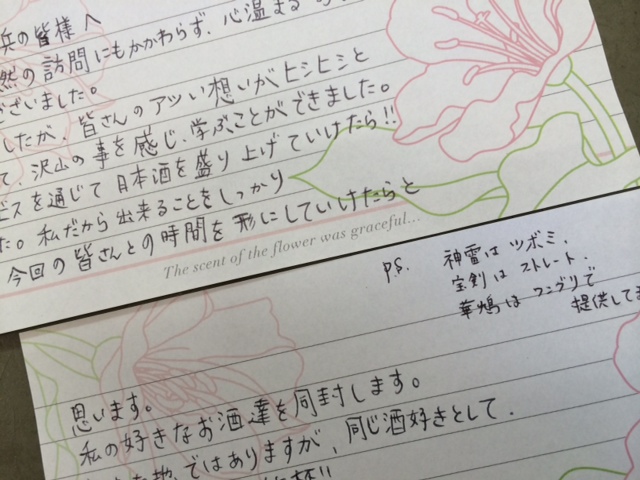 兵の皆様へ
然の訪問にもかかわらず、心温まる
ございました。
したが、皆さんのアツい想いがヒシヒシと
て、沢山の事を感じ、学ぶことができました。
ビスを通じて日本酒を盛り上げていけたら!!
た。私だから出来ることをしっかり
今回の皆さんとの時間を形にしていけたらと
The scent of the flower was graceful...
P.S. 神雷はツボミ、
宝剣はストレート、
華鳩は
提供してま
思います。
私の好きなお酒達を同封します。
ではありますが、同じ酒好きとして、